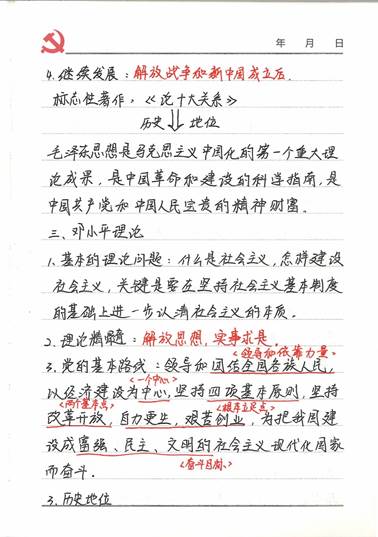 年 月 日
4.继续发展：解放战争和新中国成立后.
标志性著作，《论十大关系》
历史 地位
毛泽东思想是马克思主义中国化的第一个重大理
论成果，是中国革命和建设的科学指南，是
中国共产党和中国人民宝贵的精神财富.
三、邓小平理论
1、基本的理论问题：什么是社会主义，怎样建设
社会主义，关键是要在坚持社会主义基本制度
的基础上进一步认清社会主义的本质.
2、理论精髓：解放思想，实事求是.
<领导和依靠力量>
3、党的基本路线：领导和团结全国各族人民，
<一个中心>
以经济建设为中心，坚持四项基本原则，坚持
<两个基本点> <根本立足点>
改革开放，自力更生，艰苦创业，为把我国建
设成富强、民主、文明的社会主义现代化国家
而奋斗. <奋斗目标>
3、历史地位